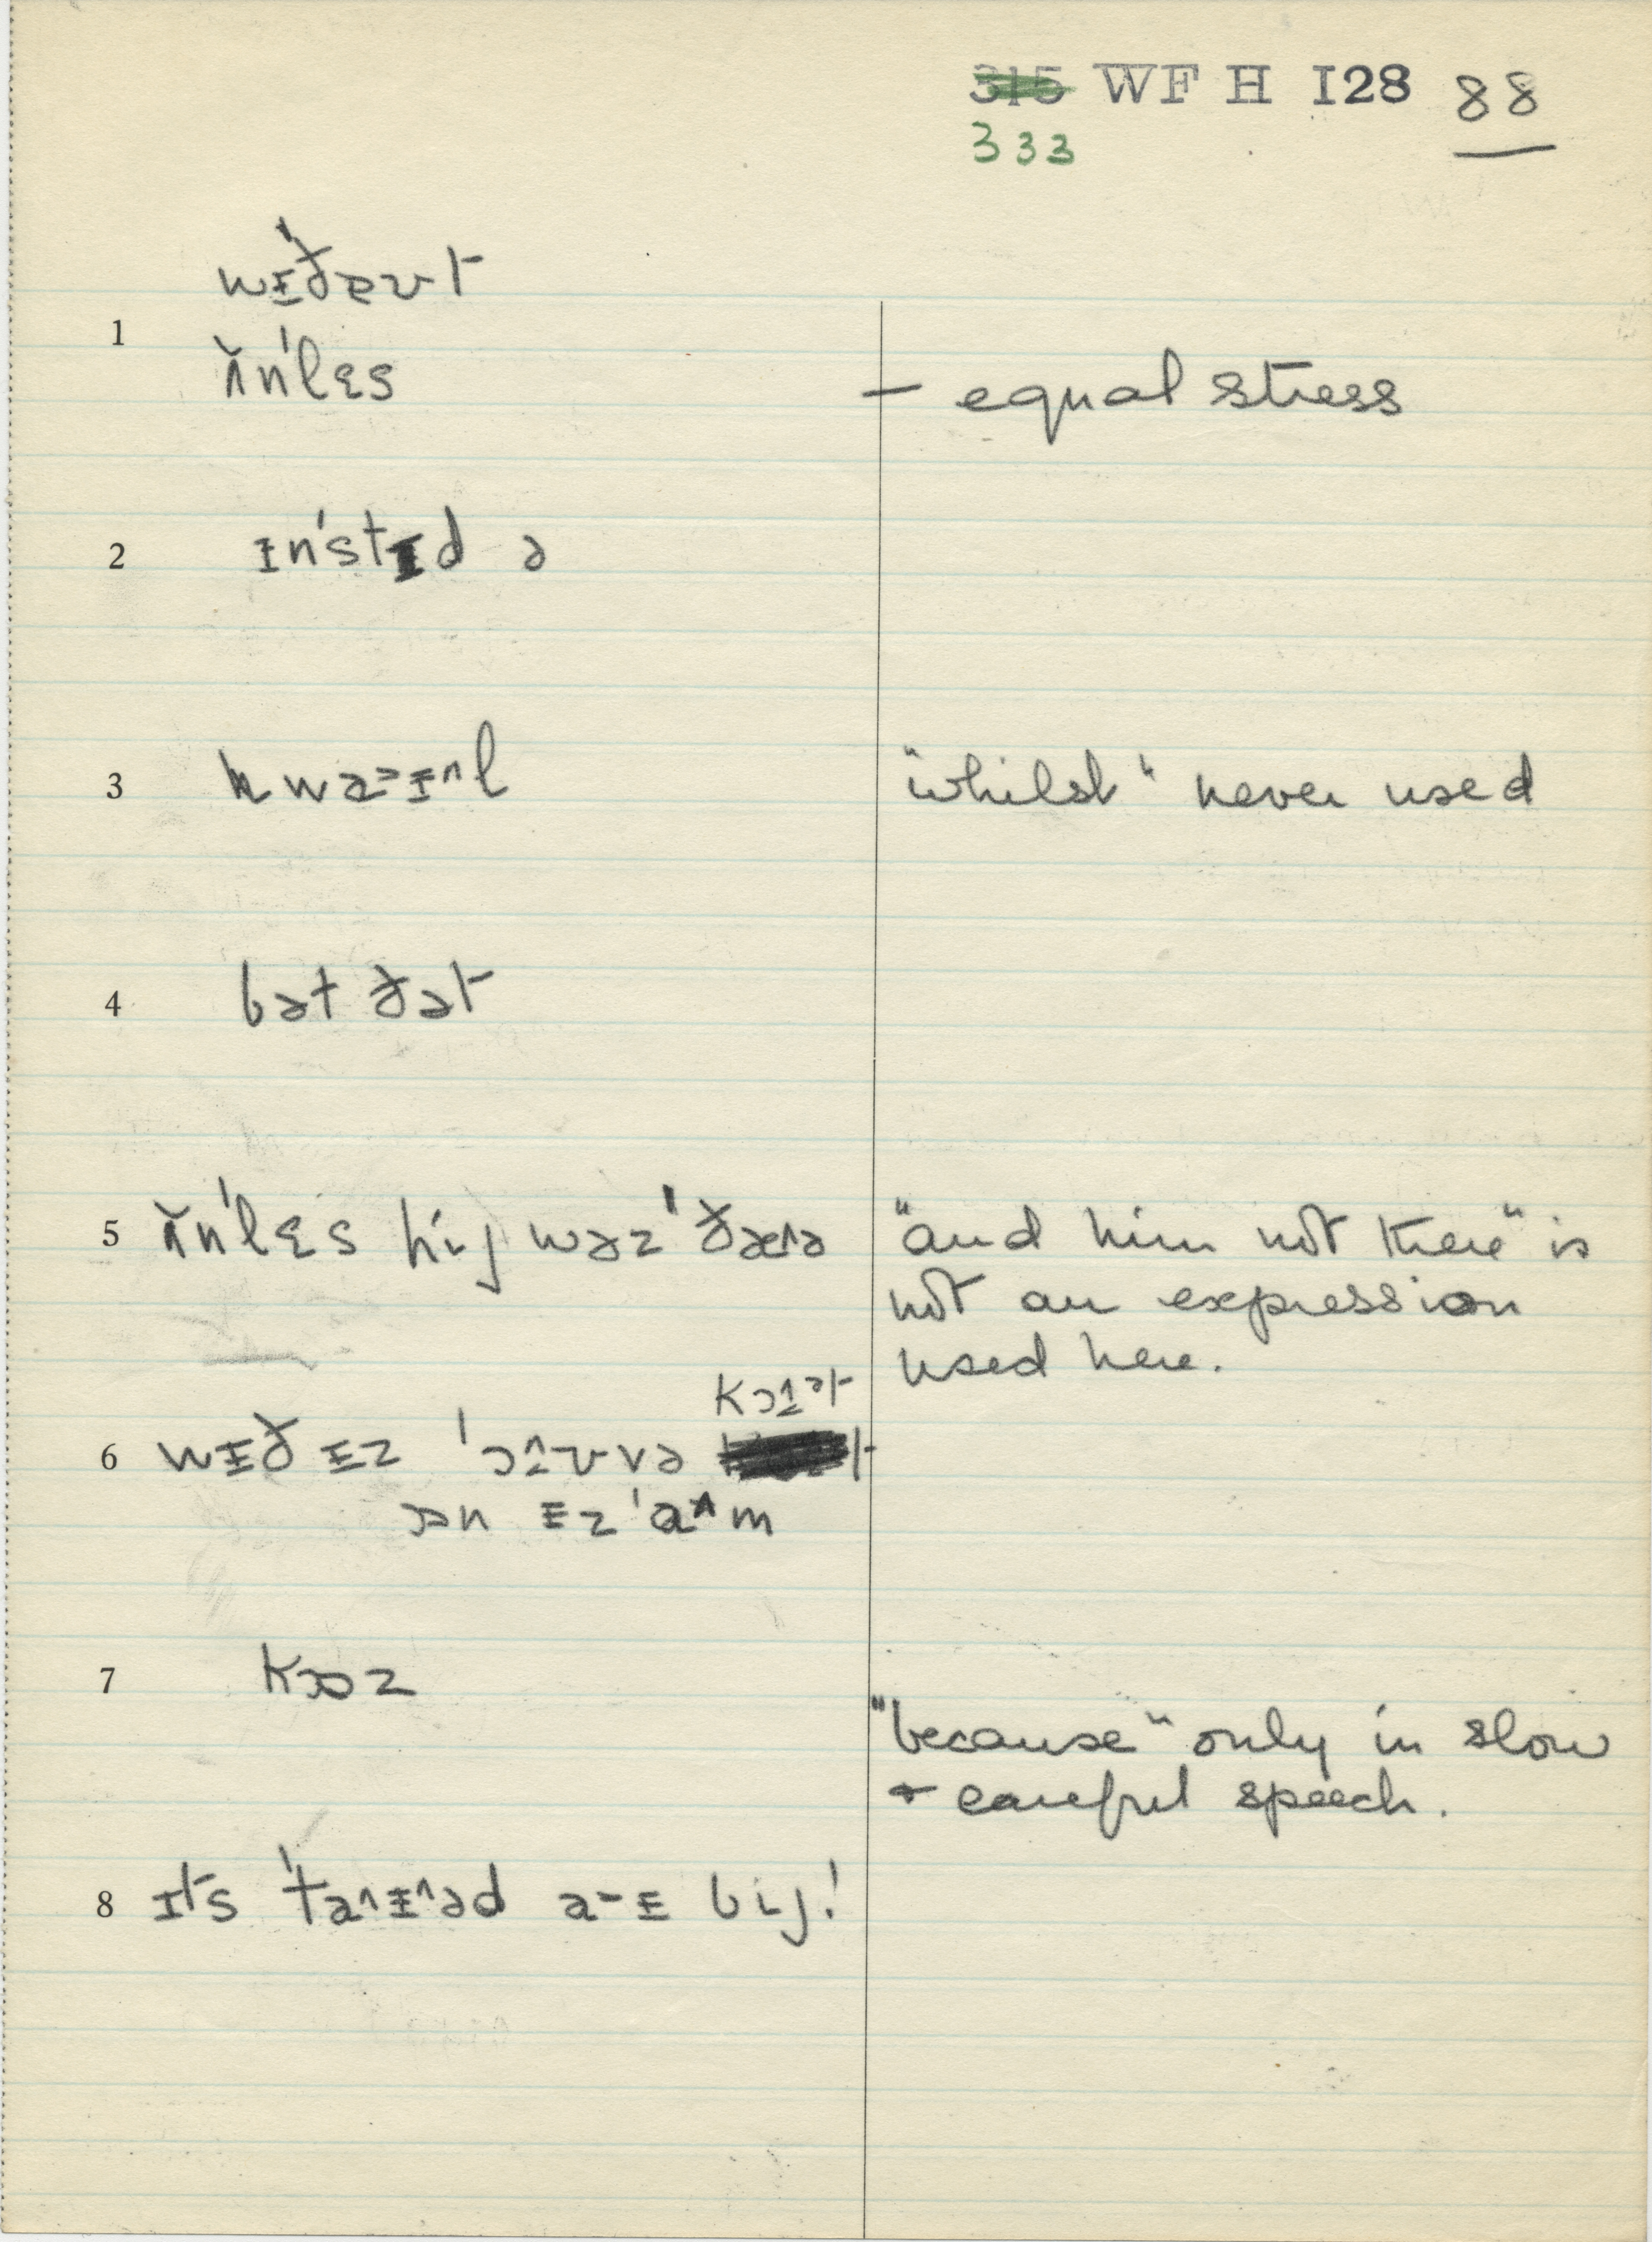 315 WF H I28 88
333
wɪ'ðɐʊt
1
ʌ̆n'lɛs – equal stress
2 ɪn'stɪd ə
3 "whilst" never used
4 bət ðət
5 ʌ̆n'lɛs hij wəz 'ðæʌə "and him not there" is
not an expression
used here.
6 wɪð ɪz
ɒn ɪz 'aʌm
7 kɒz
"because" only in slow
+ careful speech.
8 ɪts bij!